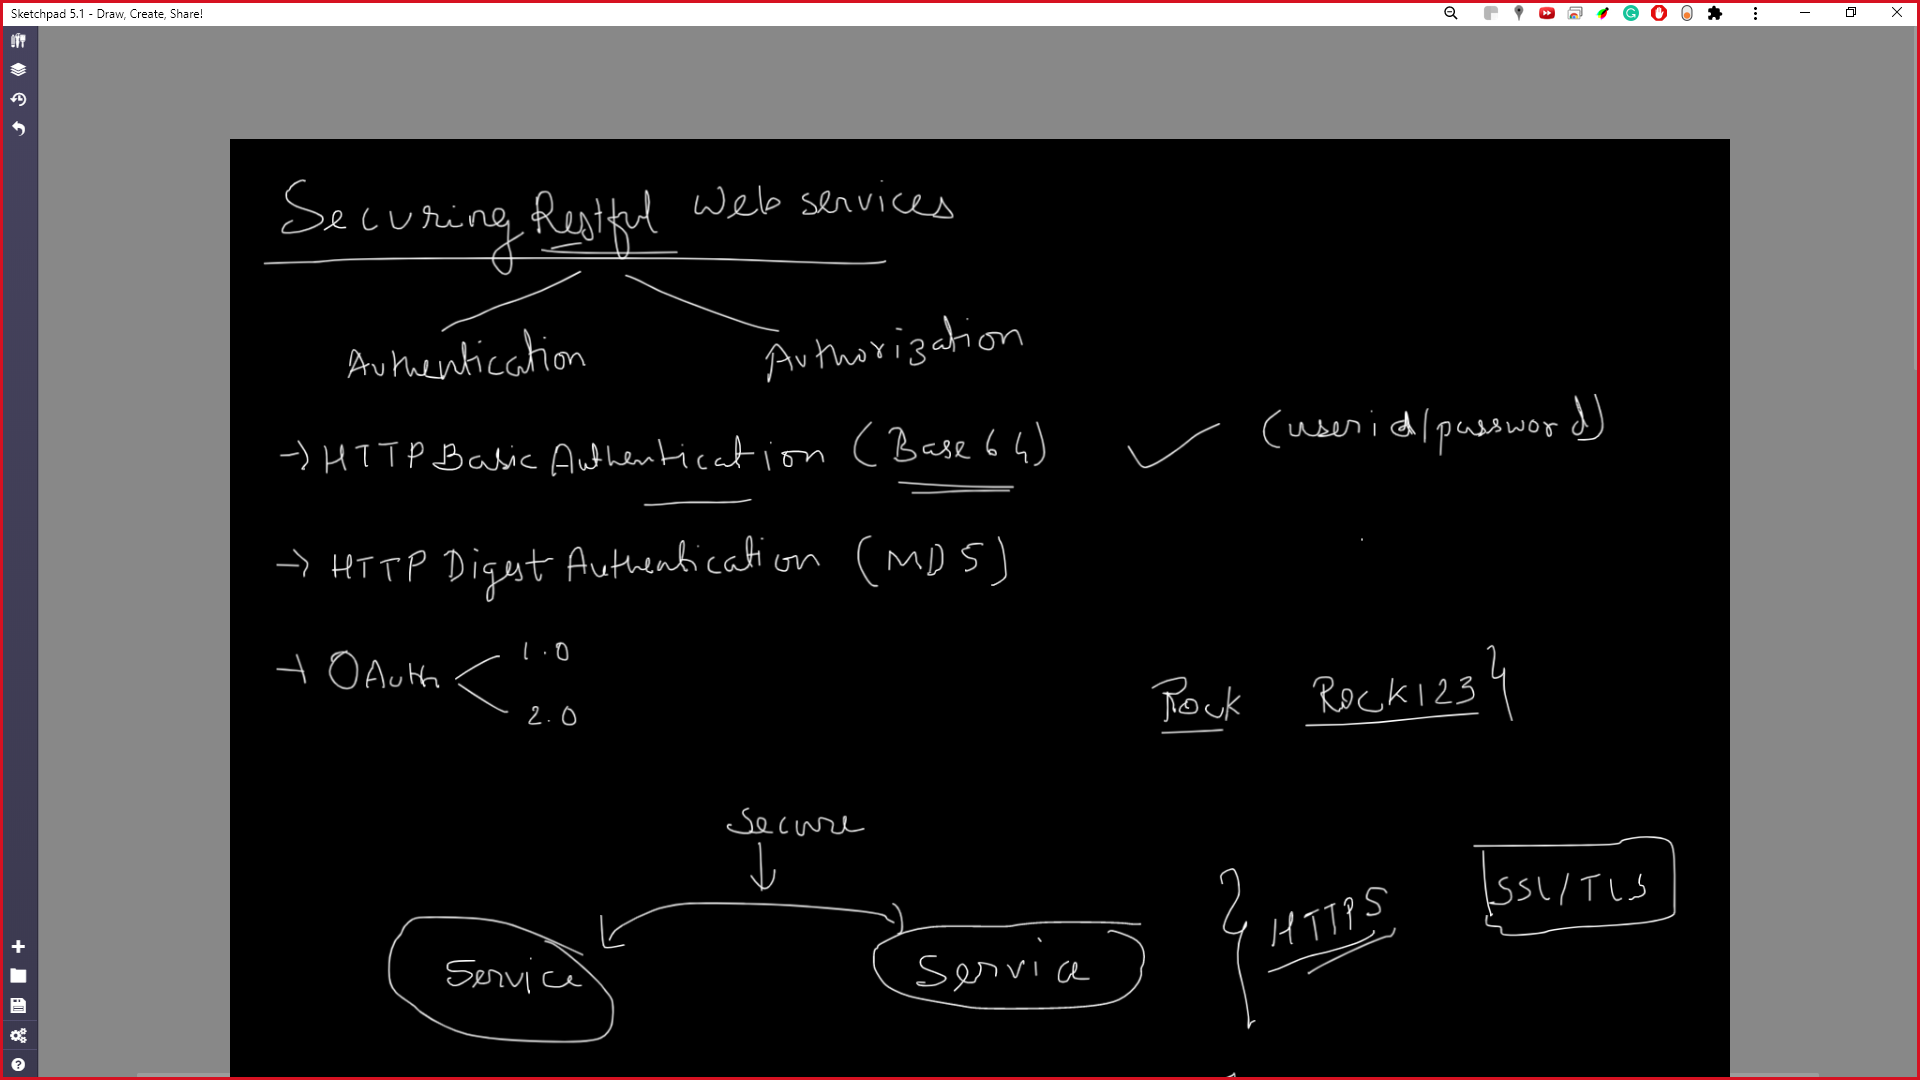 Sketchpad 5.1 - Draw, Create, Share!
Securing Restful Web services
Authentication Authorization
→ HTTP Basic Authentication (Base 64) ✓ (userid/password)
→ HTTP Digest Authentication (MD5)
→ OAuth 1.0
2.0
Rock Rock123
Secure
Service Service
HTTPS
SSL/TLS